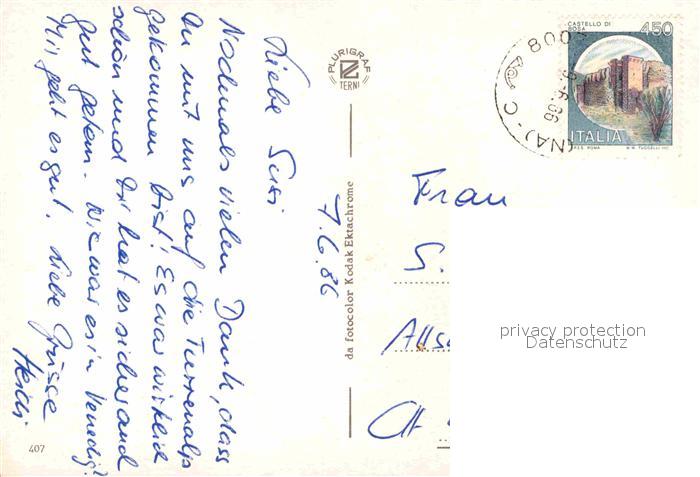 Liebe Susi
Nochmals vielen Dank, dass
Du mit uns auf die Turrenalp
gekommen bist! Es war wirklich
schön und Dir hat es sicher auch
gut getan. Wie war es in Venedig?
Mir geht es gut. Liebe Grüsse
Heidi
7.6.86
407
PLURIGRAF
TERNI
da fotocolor Kodak Ektachrome
CASTELLO DI
ROSA
450
ITALIA
I.P.S. ROMA
8.6.86
(NA) - C
Frau
S.
CH
privacy protection
Datenschutz